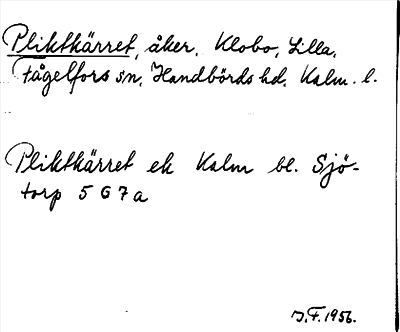 Pliktkärret, åker. Klobo, Lilla,
Fågelfors sn, Handbörds hd, Kalm. l.
Pliktkärret ek Kalm bl. Sjö-
torp 5 G 7 a
J.F. 1956.